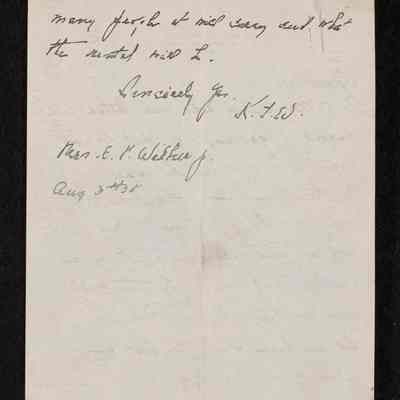 many people it will carry and what
the rental will be.
Sincerely Yrs.
K. F. W.
Mrs. E. P. Jr.
Aug 3rd 35